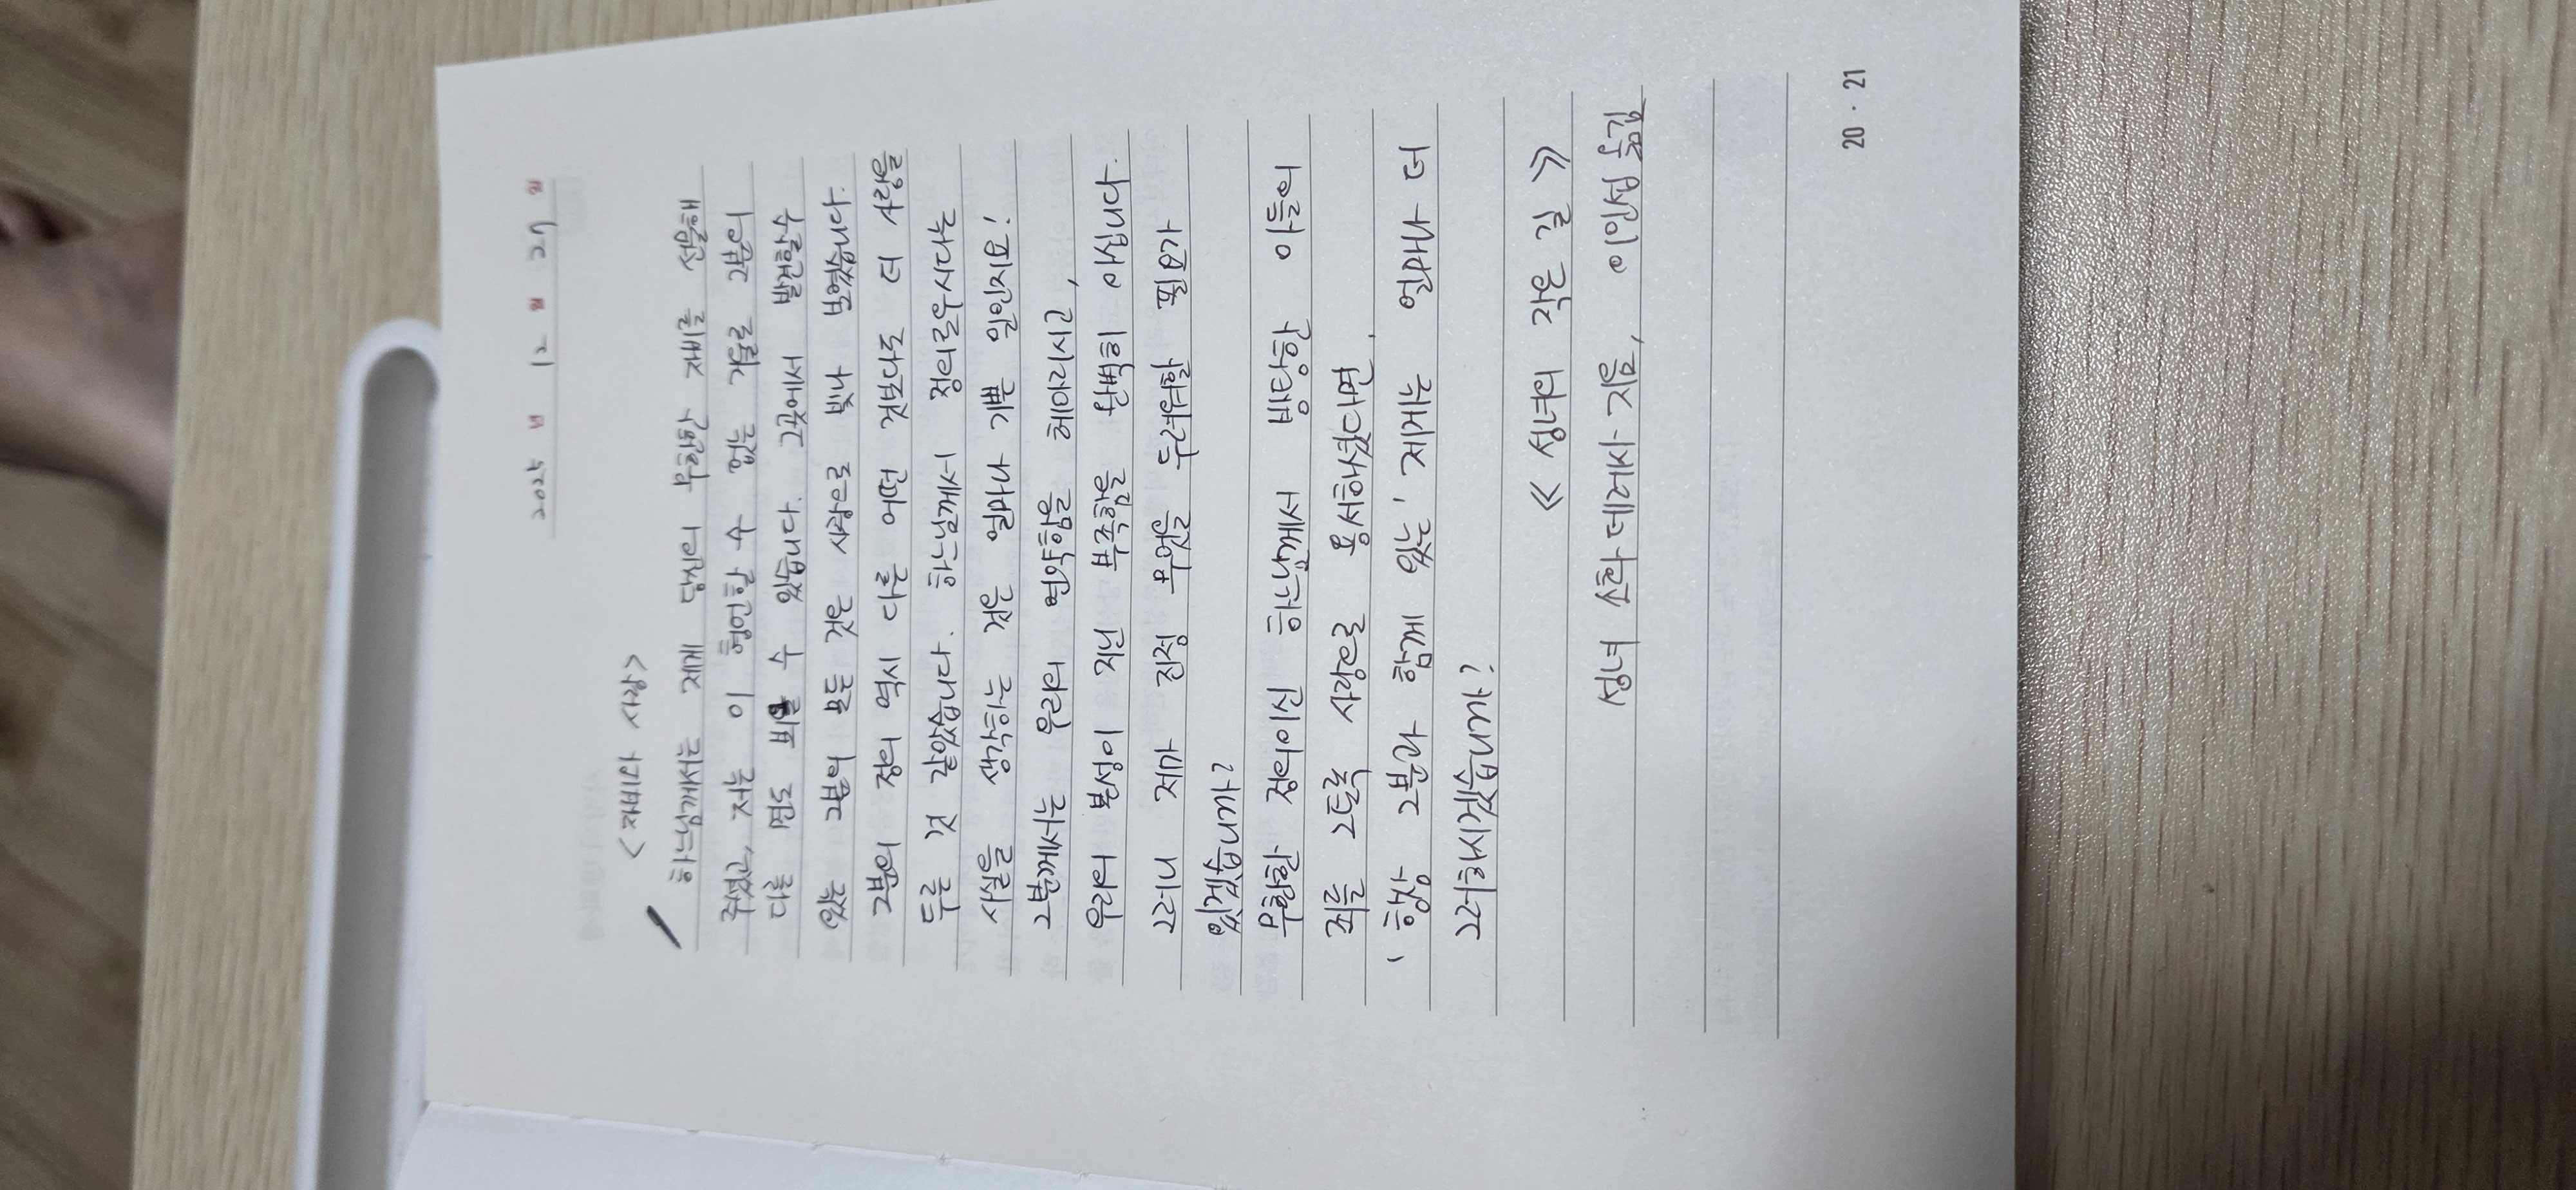 2025 년 12 월 27 일
<자비와 사랑>
하느님께서는 제게 당신의 무한한 자비를 선물해
주셨고, 저는 이 형언할 수 없는 거울로 그분의
다른 면도 비출 수 있습니다. 그곳에서 발견할 수
있는 그분의 품은 것은 사랑으로 빛나 보였습니다.
그분의 정의 역시 다른 어떤 것보다도 더 사랑을
두른 것 같았습니다. 하느님께서 정의로우시다는
사실을 생각하는 것은 얼마나 기쁜 일인지요!
그분께서는 우리의 연약함을 헤아리시고,
우리의 본성이 지닌 부족함을 완벽히 아십니다.
그러니 제가 진정 무엇을 두려워할 필요가
있겠습니까?
무한한 정의이신 하느님께서 방탕한 아들의
죄를 그토록 사랑으로 용서하셨다면,
'항상 그분과 함께 있는' 제게는 얼마나 더
그러하시겠습니까?
《 성녀의 작은 길 》
성녀 소화 데레사 지음, 이인섭 옮김
20 · 21